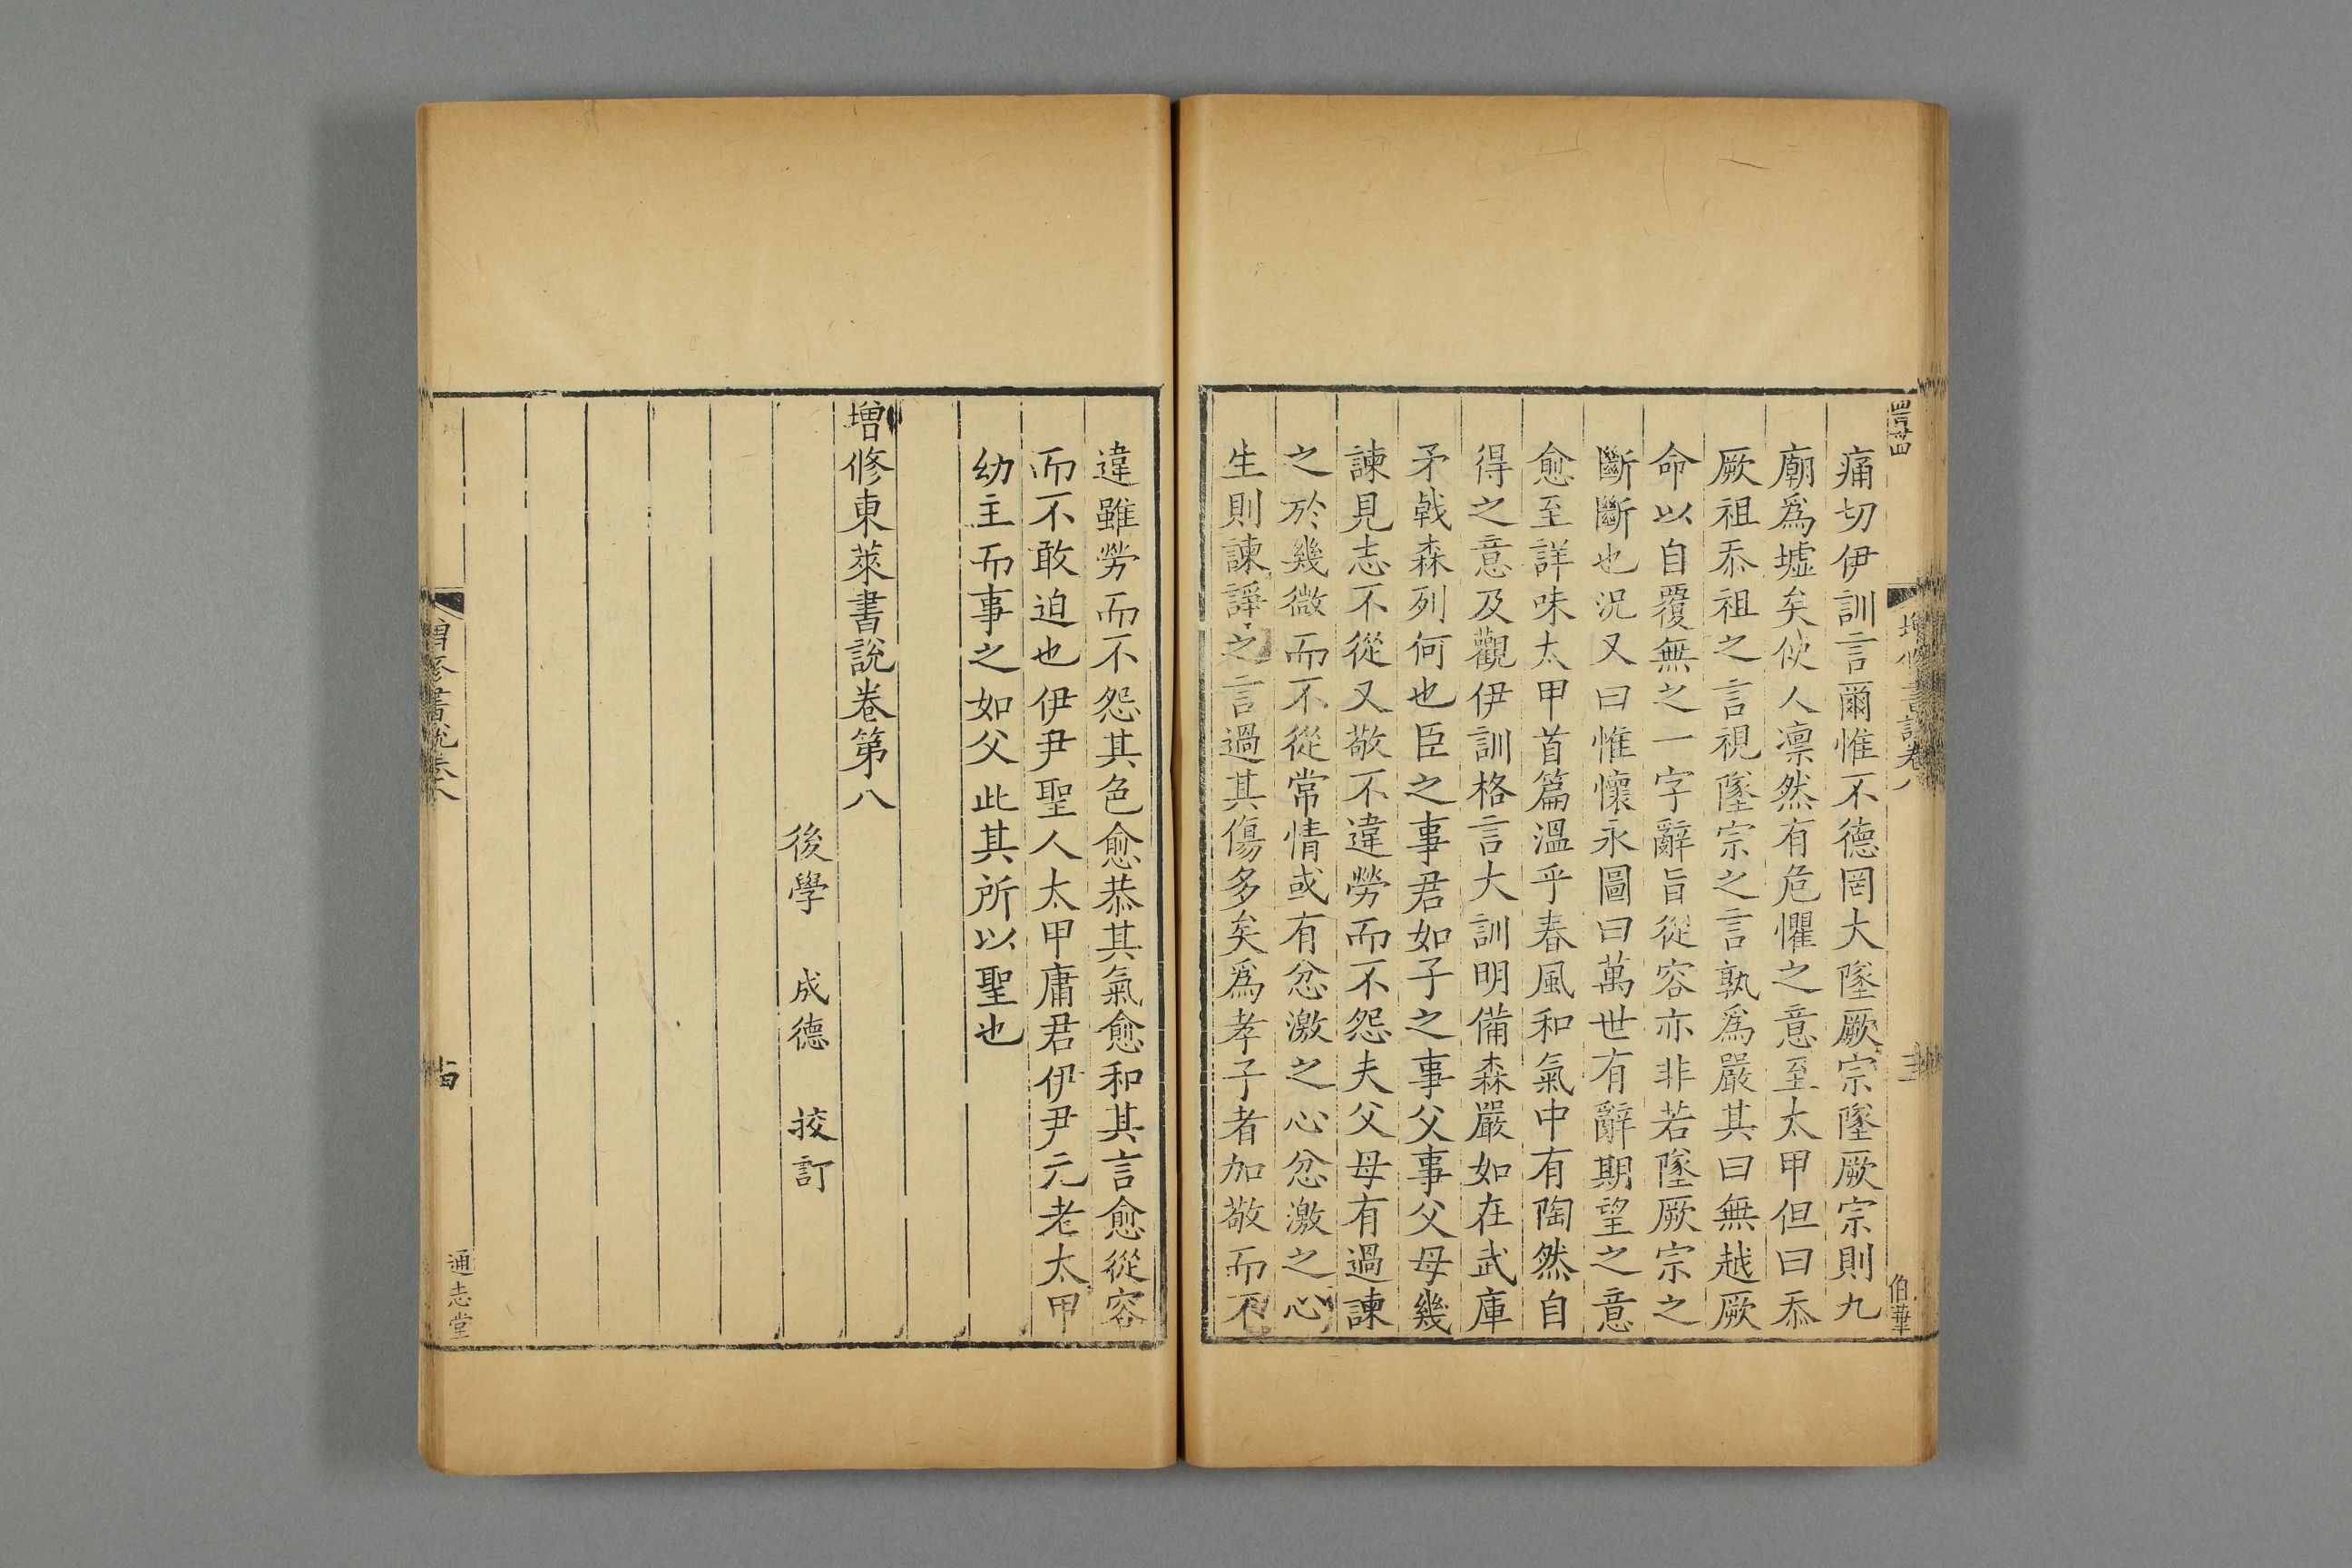 痛切伊訓言爾惟不德罔大墜厥宗墜厥宗則九
廟爲墟矣使人凛然有危懼之意至太甲但曰忝
厥祖忝祖之言視墜宗之言孰爲嚴其曰無越厥
命以自覆無之一字辭旨從容亦非若墜厥宗之
斷斷也況又曰惟懷永圖曰萬世有辭期望之意
愈至詳味太甲首篇溫乎春風和氣中有陶然自
得之意及觀伊訓格言大訓明備森嚴如在武庫
矛戟森列何也臣之事君如子之事父事父母幾
諫見志不從又敬不違勞而不怨夫父母有過諫
之於幾微而不從常情或有忿激之心忿激之心
生則諫諍之言過其傷多矣爲孝子者加敬而不
違雖勞而不怨其色愈恭其氣愈和其言愈從容
而不敢迫也伊尹聖人太甲庸君伊尹元老太甲
幼主而事之如父此其所以聖也
增修東萊書說卷第八
後學 成德 挍訂
增修書說卷八
通志堂
增修書說卷八
伯華